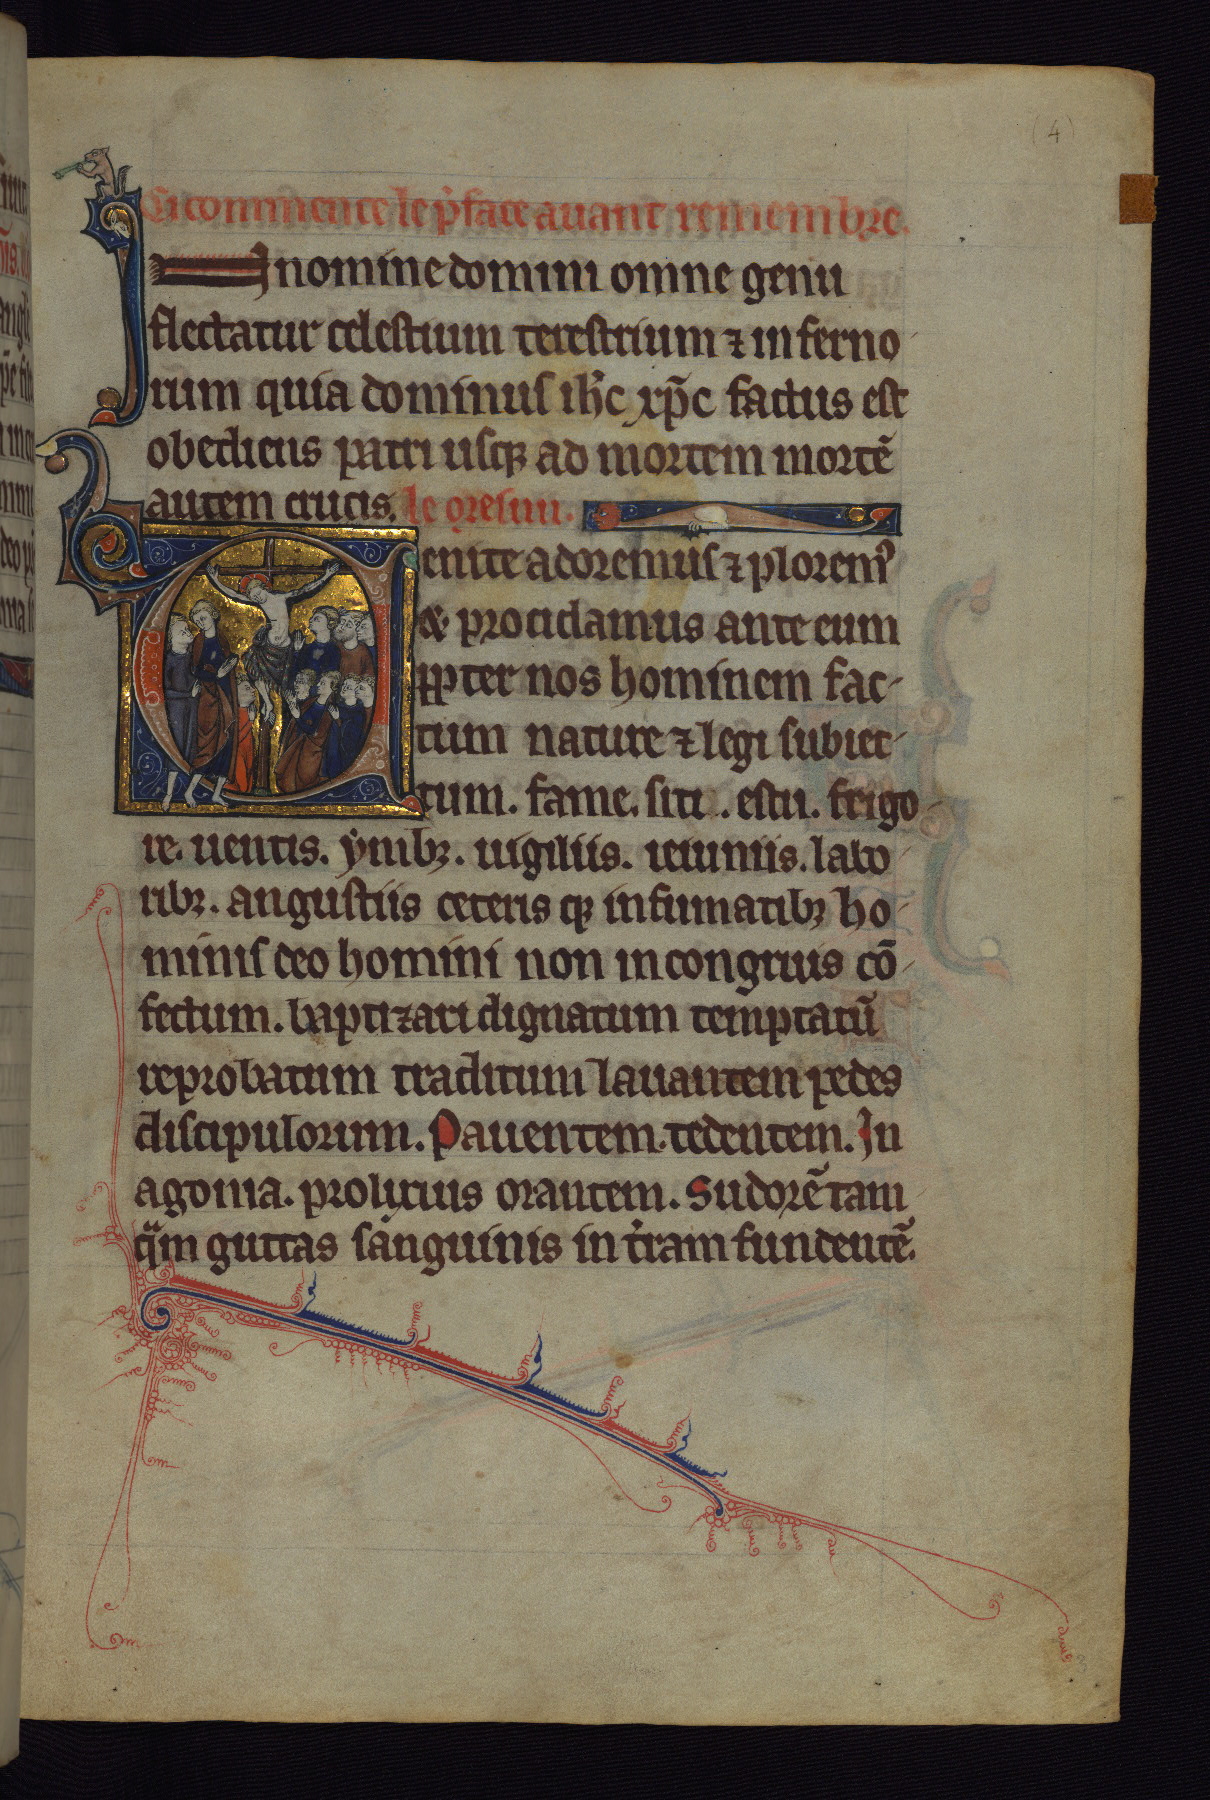 (4)
Ci commence le p̉face auant remembre.
In nomine domini omne genu
flectatur celestium terestrium ⁊ inferno
rum quia dominus ih̄c xp̄c factus est
obediens patri usqꝫ ad mortem mortē
autem crucis. le oresun.
Uenite adoremus ⁊ ploremꝰ
& procidamus ante eum
ꝓpter nos hominem fac-
tum nature ⁊ legi subiec-
tum. fame. siti. estu. frigo-
re. uentis. ymbꝫ. uigiliis. ieiuniis. labo
ribꝫ. angustiis ceteris qꝫ infirmatibꝫ ho
minis deo homini non incongruis cō
fectum. baptizari dignatum temptatū
reprobatum traditum lauantem pedes
discipulorum. Pauentem. tedentem. In
agonia. prolixius orantem. Sudorē tam
qᷓm guttas sanguinis in t̉ram fundentē.